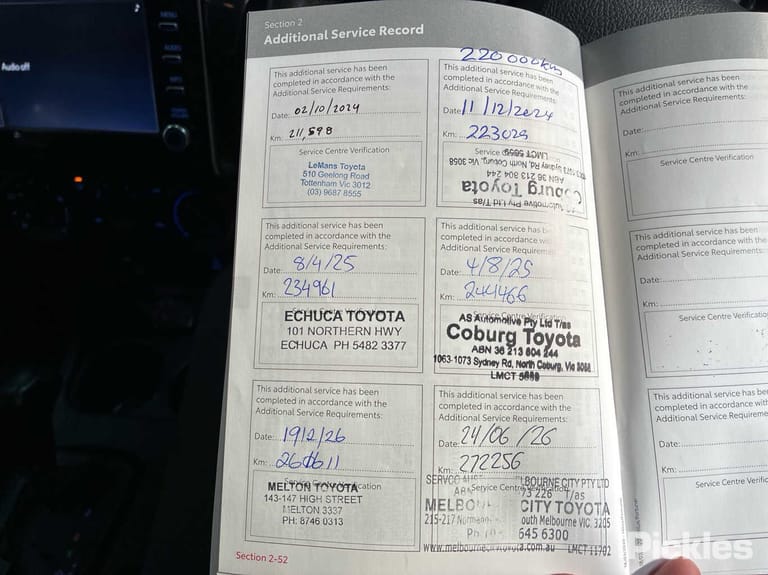 MENU
AUDIO
Audio off
Section 2
Additional Service Record
This additional service has been
completed in accordance with the
Additional Service Requirements:
Date: 02/10/2024
Km: 211,598
Service Centre Verification
LeMans Toyota
510 Geelong Road
Tottenham Vic 3012
(03) 9687 8555
220 000km
This additional service has been
completed in accordance with the
Additional Service Requirements:
Date: 11/12/2024
Km: 223029
Service
Automotive Pty Ltd T/as
Coburg Toyota
ABN 36 213 804 244
Sydney Rd, North Coburg, Vic 3058
LMCT 5659
This additional service has been
completed in accordance with the
Additional Service Requirements:
Date: 8/4/25
Km: 234961
ECHUCA TOYOTA
101 NORTHERN HWY
ECHUCA PH 5482 3377
This additional service has been
completed in accordance wi
Additional Service Requiremen
Date: 4/8/25
Km: 244466
Service Centre Verification
AS Automotive Pty Ltd T/as
Coburg Toyota
ABN 36 213 804 244
1063-1073 Sydney Rd, North Coburg, Vic 3058
LMCT
This additional service has been
completed in accordance with the
Additional Service Requirements:
Date: 19/2/26
Km:
Service Centre Verification
MELTON TOYOTA
143-147 HIGH STREET
MELTON 3337
PH: 8746 0313
This additional service has been
completed in accordance with the
Additional Service Requirements:
Date: 24/06/26
Km: 272256
Service Centre Verification
SERVCO LBOURNE CITY PTY LTD
73 226 T/as
MELBO CITY TOYOTA
215-217 outh Melbourne VIC. 3205
645 6300
www.melbournecitytoyota.com.au LMCT 11702
Section 2-52
This additional service has been
completed in accordance with the
Additional Service Requirements:
Date:
Km:
Service Centre Verification
This additional service has been
completed in accordance with the
Additional Service Requirements
Date:
Km:
Service Centre Verification
This additional service has bee
completed in accordance with
Additional Service Requireme
Date:
Km:
Service Centre Verific
Pickles